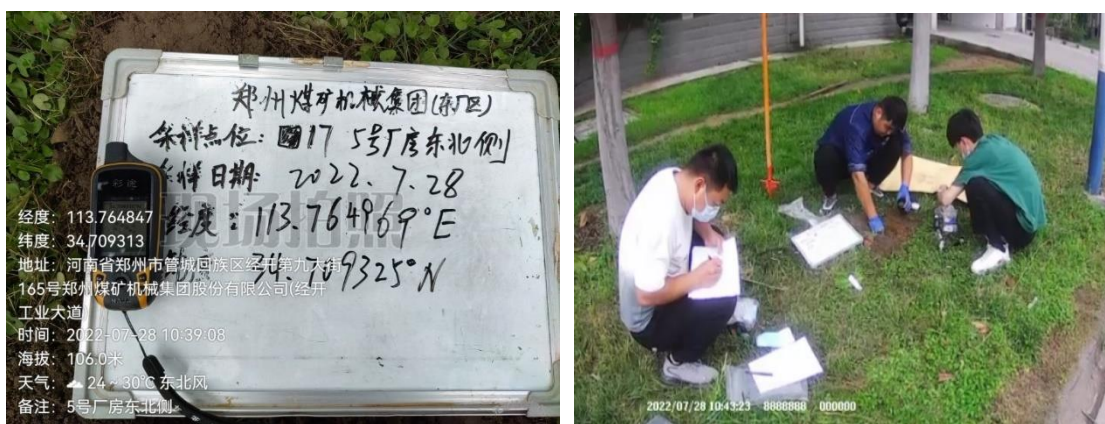 郑州煤矿机械集团(东厂区)
采样点位: 17 5号厂房东北侧
采样日期: 2022.7.28
经度: 113.764969°E
34.709325°N
现场拍照
经度: 113.764847
纬度: 34.709313
地址: 河南省郑州市管城回族区经开第九大街
165号郑州煤矿机械集团股份有限公司(经开
工业大道
时间: 2022-07-28 10:39:08
海拔: 106.0米
天气: 24~30℃ 东北风
备注: 5号厂房东北侧
2022/07/28 10:43:23 8888888 000000